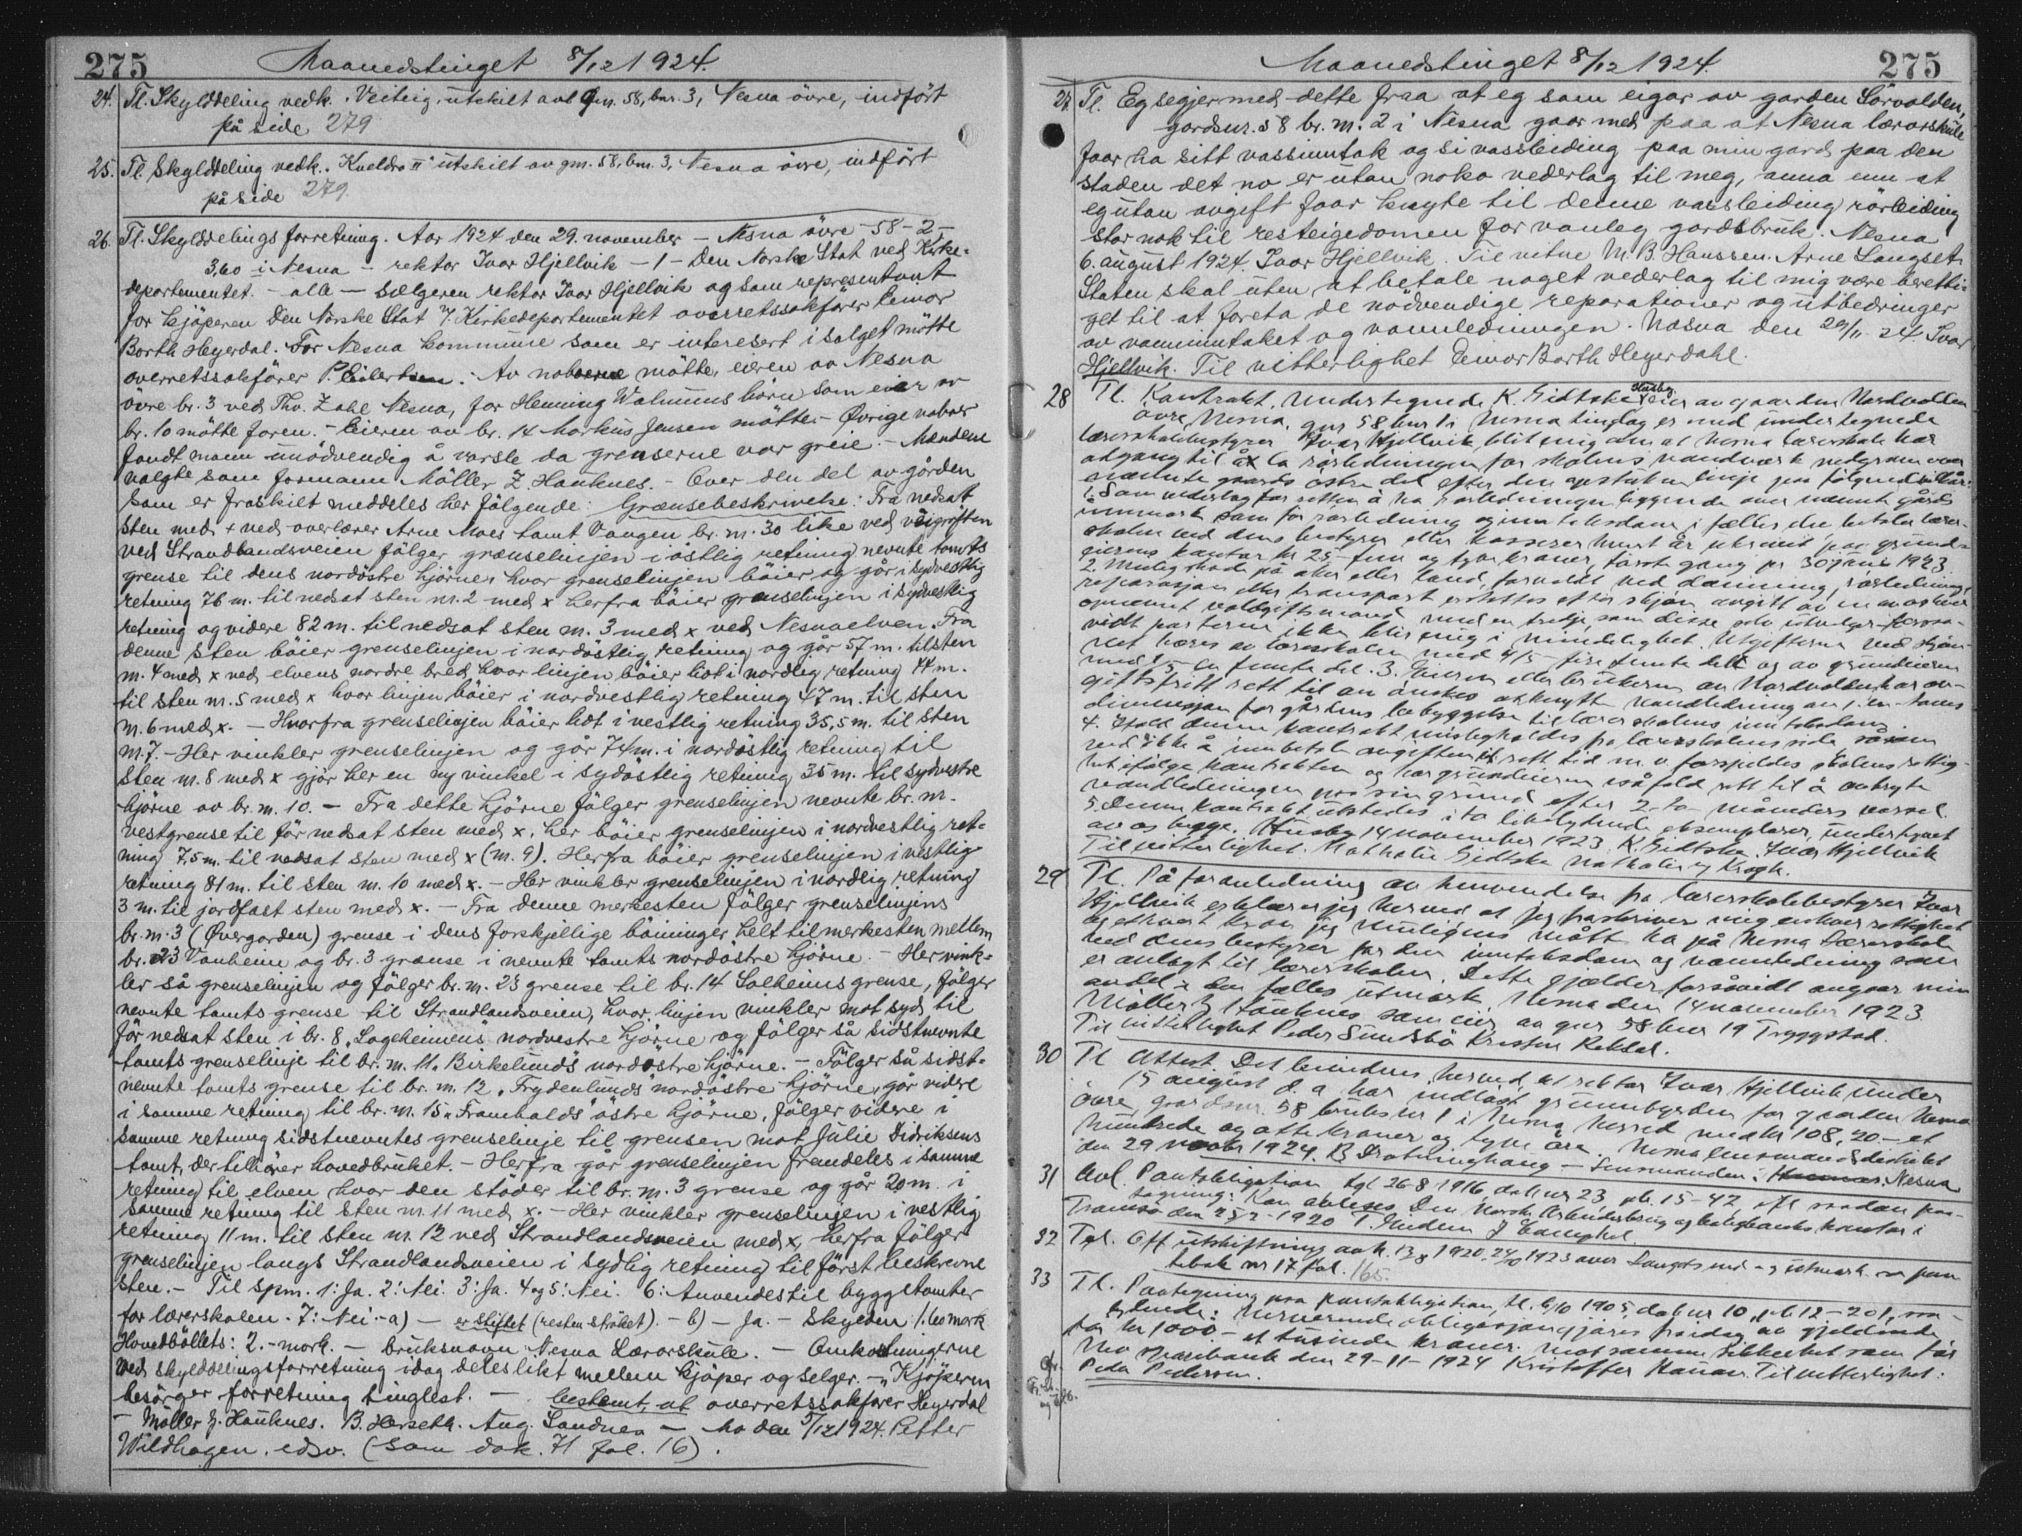 275
Maanedstinget 8/12 1924.
24. Tl. Skylddeling vedk. Veiteig, utskilt av gnr. 58, bnr. 3, Nesna övre, indfört
på side 279
25. Tl Skylddeling vedk. Kveldro II utskilt av gnr. 58, bnr. 3, Nesna övre, indfört
på side 279.
26. Tl. Skylddelingsforretning. Aar 1924 den 29. november – Nesna övre – 58 – 2 –
3,60 i Nesna – rektor Ivar Hjellvik – 1 – Den Norske Stat ved Kirke-
departementet. – alle – Sælgeren rektor Ivar Hjellvik og som representant
for kjöperen Den Norske Stat v/ Kirkedepartementet overretssakförer Einar
Barth Heyerdal. For Nesna kommune som er interesert i salget mötte
overretssakförer P. Eilertsen. Av naboerne mötte, eieren av Nesna
övre br. 3 ved Thv. Zahl Nesna, for Henning Walnums börn som eier av
br. 10 mötte foren. – Eieren av br. 14 Markus Jensen mötte – Övrige naboer
fandt man unödvendig å varsle da grenserne var greie. – Mændene
valgte som formann Möller Z. Hauknes. – Over den del av gården
som er fraskilt meddeles her fölgende: Grænsebeskrivelse: Fra nedsat
sten med x ved overlærer Arne Moes tomt Vangen br. nr. 30 like ved veigröften
ved Strandlandsveien fölger grænselinjen i östlig retning nevnte tomts
grense til dens nordöstre hjörne, hvor grenselinjen böier og går i sydvestlig
retning 76 m. til nedsat sten nr. 2 med x herfra böier grenselinjen i sydvestlig
retning og videre 82 m. til nedsat sten nr. 3 med x ved Nesnaelven. Fra
denne sten böier grenselinjen i nordöstlig retning og går 57 m. til sten
nr. 4 med x ved elvens nordre bred, hvor linjen böier litt i nordlig retning 14 m.
til sten nr. 5 med x hvor linjen böier i nordvestlig retning 47 m. til sten
nr. 6 med x. – Hvorfra grenselinjen böier litt i vestlig retning 35,5 m. til sten
nr. 7. – Her vinkler grenselinjen og går 74 m. i nordöstlig retning til
sten nr. 8 med x gjör her en ny vinkel i sydöstlig retning 35 m. til sydvestre
hjörne av br. nr. 10. – Fra dette hjörne fölger grenselinjen nevnte br. nr.
vestgrense til för nedsat sten med x, her böier grenselinjen i nordvestlig ret-
ning 7,5 m. til nedsat sten med x (nr. 9). Herfra böier grenselinjen i vestlig
retning 81 m. til sten nr. 10 med x. – Her vinkler grenselinjen i nordlig retning
3 m. til jordfast sten med x. – Fra denne merkesten fölger grenselinjens
br. nr. 3 (Övergorden) grense i dens forskjellige böininger helt til merkesten mellem
br. 23 Vanheim og br. 3 grænse i nevnte tomts nordöstre hjörne. – Her vink-
ler så grenselinjen og fölger br. nr. 23 grense til br. 14 Solheims grense, fölger
nevnte tomts grense til Strandlandsveien, hvor linjen vinkler mot syd til
för nedsat sten i br. 8 „Lageheimens" nordvestre hjörne og fölger så sidstnevnte
tomts grenselinje til br. nr. 11. Birkelunds nordöstre hjörne. – Fölger så sidst-
nevnte tomts grense til br. nr. 12 „Frydenlunds" nordöstre hjörne, går videre
i samme retning til br. nr. 15 „Framhalds" östre hjörne, fölger videre i
samme retning sidstnevntes grenselinje til grensen mot Julie Didriksens
tomt, der tilhörer hovedbruket. – Herfra går grenselinjen fremdeles i samme
retning til elven hvor den stöder til br. nr. 3 grense og går 20 m. i
samme retning til sten nr. 11 med x. – Her vinkler grenselinjen i vestlig
retning 11 m. til sten nr. 12 ved Strandlandsveien med x, herfra fölger
grenselinjen langs Strandlandsveien i sydlig retning til först beskrevne
sten. – Til spm. 1: Ja. 2: Nei. 3: Ja. 4 og 5: Nei. 6: Anvendes til byggetomter
for lærerskolen. 7: Nei – a) – er skiftet (resten ströket). – b) – Ja. – Skylden: 1.60 mark
Hovedböllets: 2.- mark. – bruksnavn Nesna Lærarskule. – Omkostningerne
ved skylddelingsforretning idag deles likt mellem kjöper og selger. – „Kjöperen
besörger forretning tinglest. – bestemt, at overretssakförer Heyerdal
– Möller Z. Hauknes. B. Herseth. Aug. Sandnes – Mo den 5/12 1924. Petter
Wildhagen. edsv. (Som dok. 71 fol. 16).
Maanedstinget 8/12 1924.
275
27. Tl. Eg segjer med dette fraa at eg som eigar av garden Sörvolden,
gardsnr. 58 br. nr. 2 i Nesna gaar med paa at Nesna lærarskule
faar ha sitt vassinntak og si vassleiding paa min gard paa den
staden det no er utan noko vederlag til meg, anna enn at
eg utan avgift faar knyte til denne vassleiding rörleiding
stor nok til resteigedomen for vanleg gardsbruk. Nesna
6. august 1924. Ivar Hjellvik. Til vitne M. B. Hanssen. Arne Langset.
Staten skal uten at betale noget vederlag til mig være beretti-
get til at foreta de nödvendige reparationer og utbedringer
av vanninntaket og vannledningen. Nesna den 29/11 24. Ivar
Hjellvik. Til vitterlighet Einar Barth Heyerdahl.
28 Tl. Kontrakt. Undertegnede K. Gidtske Husby eier av gaarden Nordvollen
övre Nesna, gnr 58 bnr 1 i Nesna tinglag er med undertegnede
lærerskolebestyrer Ivar Hjellvik blit enig om at Nesna lærerskole har
adgang til å la rörledningen for skolens vandverk nedgraves over
nævnte gaards östre del efter den opstukne linje paa fölgende vilkår:
1. Som vederlag for retten å ha rörledningen liggende over nævnt gårds
innmark som for rörledning og inntaksdam i fælles eie, betaler lærer-
skolen ved dens bestyrer eller kasserer hvert år ukrævet paa grund-
eierens kontor kr 25 – fem og tyve kroner, förste gang pr 30 juni 1923.
2. Mulig skade på aker eller land, forvoldt ved damning, rörledning,
reparasjon eller transport erstattes efter skjön avgitt av en av hver
opnævnt voldgiftsmand med en tredje som disse selv utvelger forsaa-
vidt parterne ikke blir enig i mindelighet. Utgifterne ved skjön-
net bæres av lærerskolen med 4/5 fire femte dele og av grundeieren
med 1/5 en femte del. 3. Eieren eller brukeren av Nordvolden har av-
giftsfritt rett til om önskes at knytte vandledning av 1. en – toms
dimensjon for gårdens bebyggelse til lærerskolens inntaksdam.
4. Ifald denne kontrakt misligholdes fra lærerskolens side såsom
ved ikke å innbetale avgiften i rett tid m. v. forspildes skolens rettig-
het ifölge kontrakten og har grundeieren isåfald rett til å avbryte
vandledningen paa sin grund efter 2 – to – måneders varsel.
5. Denne kontrakt utstedes i to likelydende eksemplarer, undertegnet
av os begge. Husby 14 november 1923. K. Gidtske. Ivar Hjellvik
Til vitterlighet. Nathalie Gidtske Nathalie Krogh.
29 Tl. På foranledning av henvendelse fra lærerskolebestyrer Ivar
Hjellvik erklærer jeg herved at jeg fraskriver mig enhver rettighet
og ethvert krav jeg muligens måtte ha på Nesna Lærerskole
ved dens bestyrer for den inntaksdam og vannledning som
er anlagt til lærerskolen. Dette gjælder forsåvidt angaar min
andel i den fælles utmark. Nesna den 14 november 1923
Möller Z Hauknes som eier av gnr 58 bnr 19 Tryggstad.
Til vitterlighet Peder Sundsbö Kristen Reksel.
30 Tl Attest. Det bevidnes herved at rektor Ivar Hjellvik under
15 august d. a har indlöst grunnbyrden for gaarden Nesna
övre, gaardsnr. 58 bruksnr 1 i Nesna herred med kr 108,20 – et
hundrede og otte kroner og tyve öre. Nesna lensmannsdistrikt
den 29 novbr 1924. B Dronninghaug – Lensmanden i Nesna
31 Avl. Pantobligation tgl 26-8 1916, dok nr 23, pb. 15-42, eft saadan paa-
tegning: Kan avlæses. Den Norske Arbeiderbruk og Boligbanks kontor i
Tromsö den 25/2-1920
32 Tgl. Off utskiftning avh. 13/8 1920, 24/10 1923 over Langsets ind- og utmark se pan-
tebok nr 17 fol. 165.
33 Tl. Paategning paa pantobligation, tl. 6/10 1905, dok nr 10, pb 12-201, saa-
lydende: Nærværende obligasjon gjöres herved gjeldende
for kr 1000 – et tusinde kroner mot samme sikkerhet som för
Mo Sparebank den 29-11-1924 Kristoffer Hanan. Til vitterlighet:
Peder Pedersen.